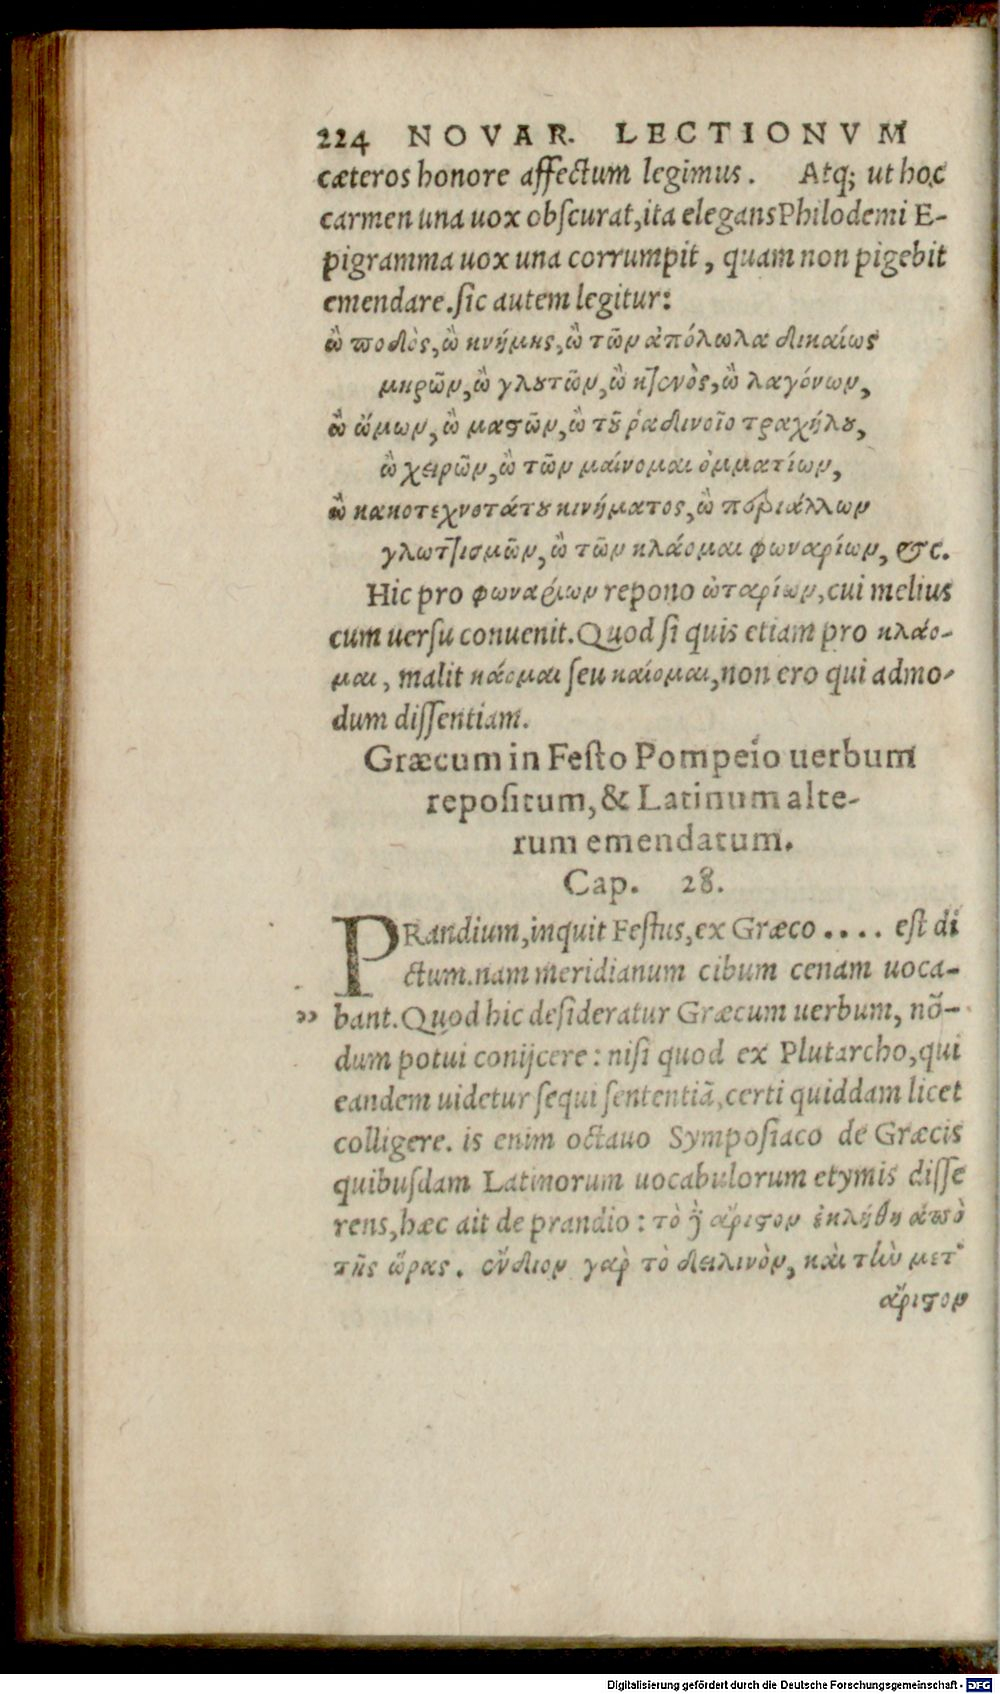 224 NOVAR. LECTIONVM
cæteros honore affectum legimus. Atq; ut hoc
carmen una uox obſcurat, ita elegans Philodemi E-
pigramma uox una corrumpit, quam non pigebit
emendare. ſic autem legitur:
ὢ ποδὸς, ὢ κνήμης, ὢ τῶν ἀπόλωλα δικαίως
μηρῶν, ὢ γλουτῶν, ὢ κτενὸς, ὢ λαγόνων,
ὢ ὤμων, ὢ μαστῶν, ὢ τοῦ ῥαδινοῖο τραχήλου,
ὢ χειρῶν, ὢ τῶν μαίνομαι ὀμματίων,
ὢ κακοτεχνοτάτου κινήματος, ὢ περιάλλων
γλωττισμῶν, ὢ τῶν κλάομαι φωναρίων, &c.
Hic pro φωναρίων repono ὠταρίων, cui melius
cum uerſu conuenit. Quod ſi quis etiam pro κλάο-
μαι, malit κάομαι ſeu καίομαι, non ero qui admo-
dum diſſentiam.
Græcum in Feſto Pompeio uerbum
repoſitum, & Latinum alte-
rum emendatum.
Cap. 28.
PRandium, inquit Feſtus, ex Græco .... eſt di
ctum. nam meridianum cibum cenam uoca-
" bant. Quod hic deſideratur Græcum uerbum, nõ-
dum potui conijcere: niſi quod ex Plutarcho, qui
eandem uidetur ſequi ſententiã, certi quiddam licet
colligere. is enim octauo Sympoſiaco de Græcis
quibuſdam Latinorum uocabulorum etymis diſſe
rens, hæc ait de prandio: τὸ δὲ ἄριστον ἐκλήθη ἀπὸ
τῆς ὥρας. ἔνδιον γὰρ τὸ δειλινὸν, καὶ τὴν μετ᾽
ἄριστον
Digitalisierung gefördert durch die Deutsche Forschungsgemeinschaft - DFG